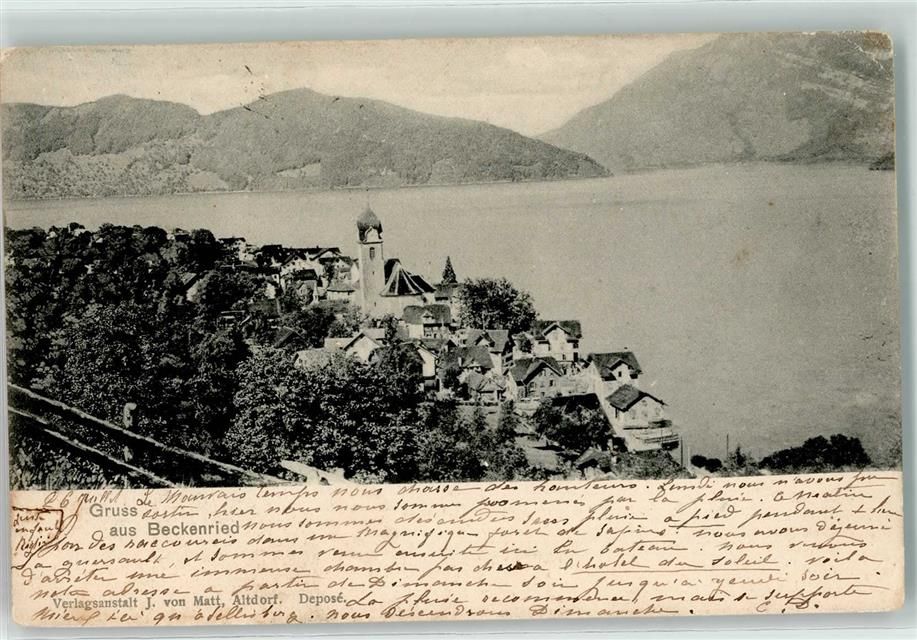 Le Mauvais temps nous chasse des hauteurs. Lundi nous n'avons pu
Gruss
aus Beckenried
sortir, hier nous nous sommes promenés par la pluie. Ce matin
nous sommes descendus sans pluie à pied pendant
des raccourcis dans une magnifique forêt de sapins. nous avons déjeuné
et sommes venu ensuite ici en bateau. nous venons
d'arrêter une immense chambre pas cher à l'hotel du soleil. voilà
notre adresse à partir de Dimanche soir jusqu'à jeudi soir.
Verlagsanstalt J. von Matt, Altdorf. Deposé.
La pluie recommence, mais se supporte
mieux ici qu'à nous descendrons Dimanche. C. D.